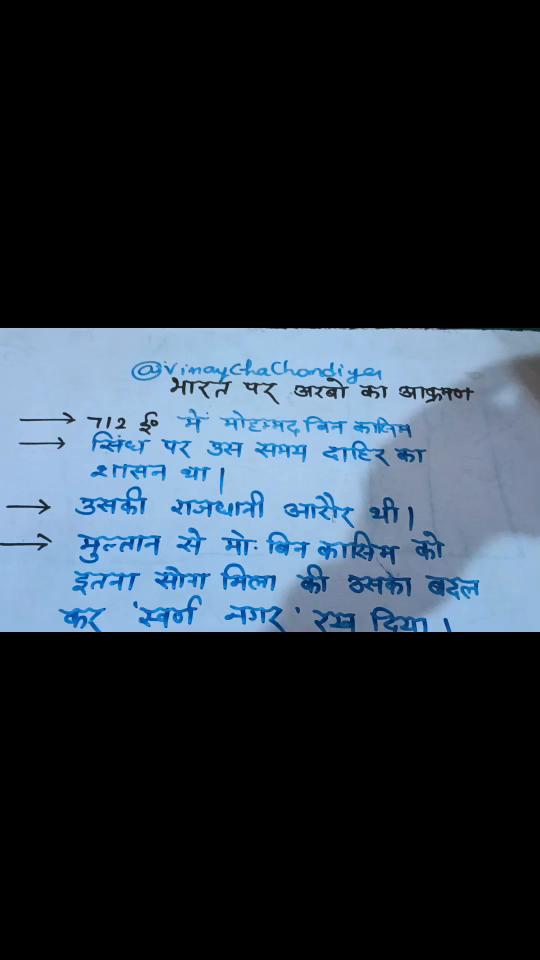 @VinayChaChondiya
भारत पर अरबो का आक्रमण
→ 712 ई० में मोहम्मद बिन कासिम
→ सिंध पर उस समय दाहिर का
शासन था |
→ उसकी राजधानी आरौर थी |
→ मुल्तान से मो. बिन कासिम को
इतना सोना मिला की उसका बदल
कर 'स्वर्ण नगर' रख दिया |